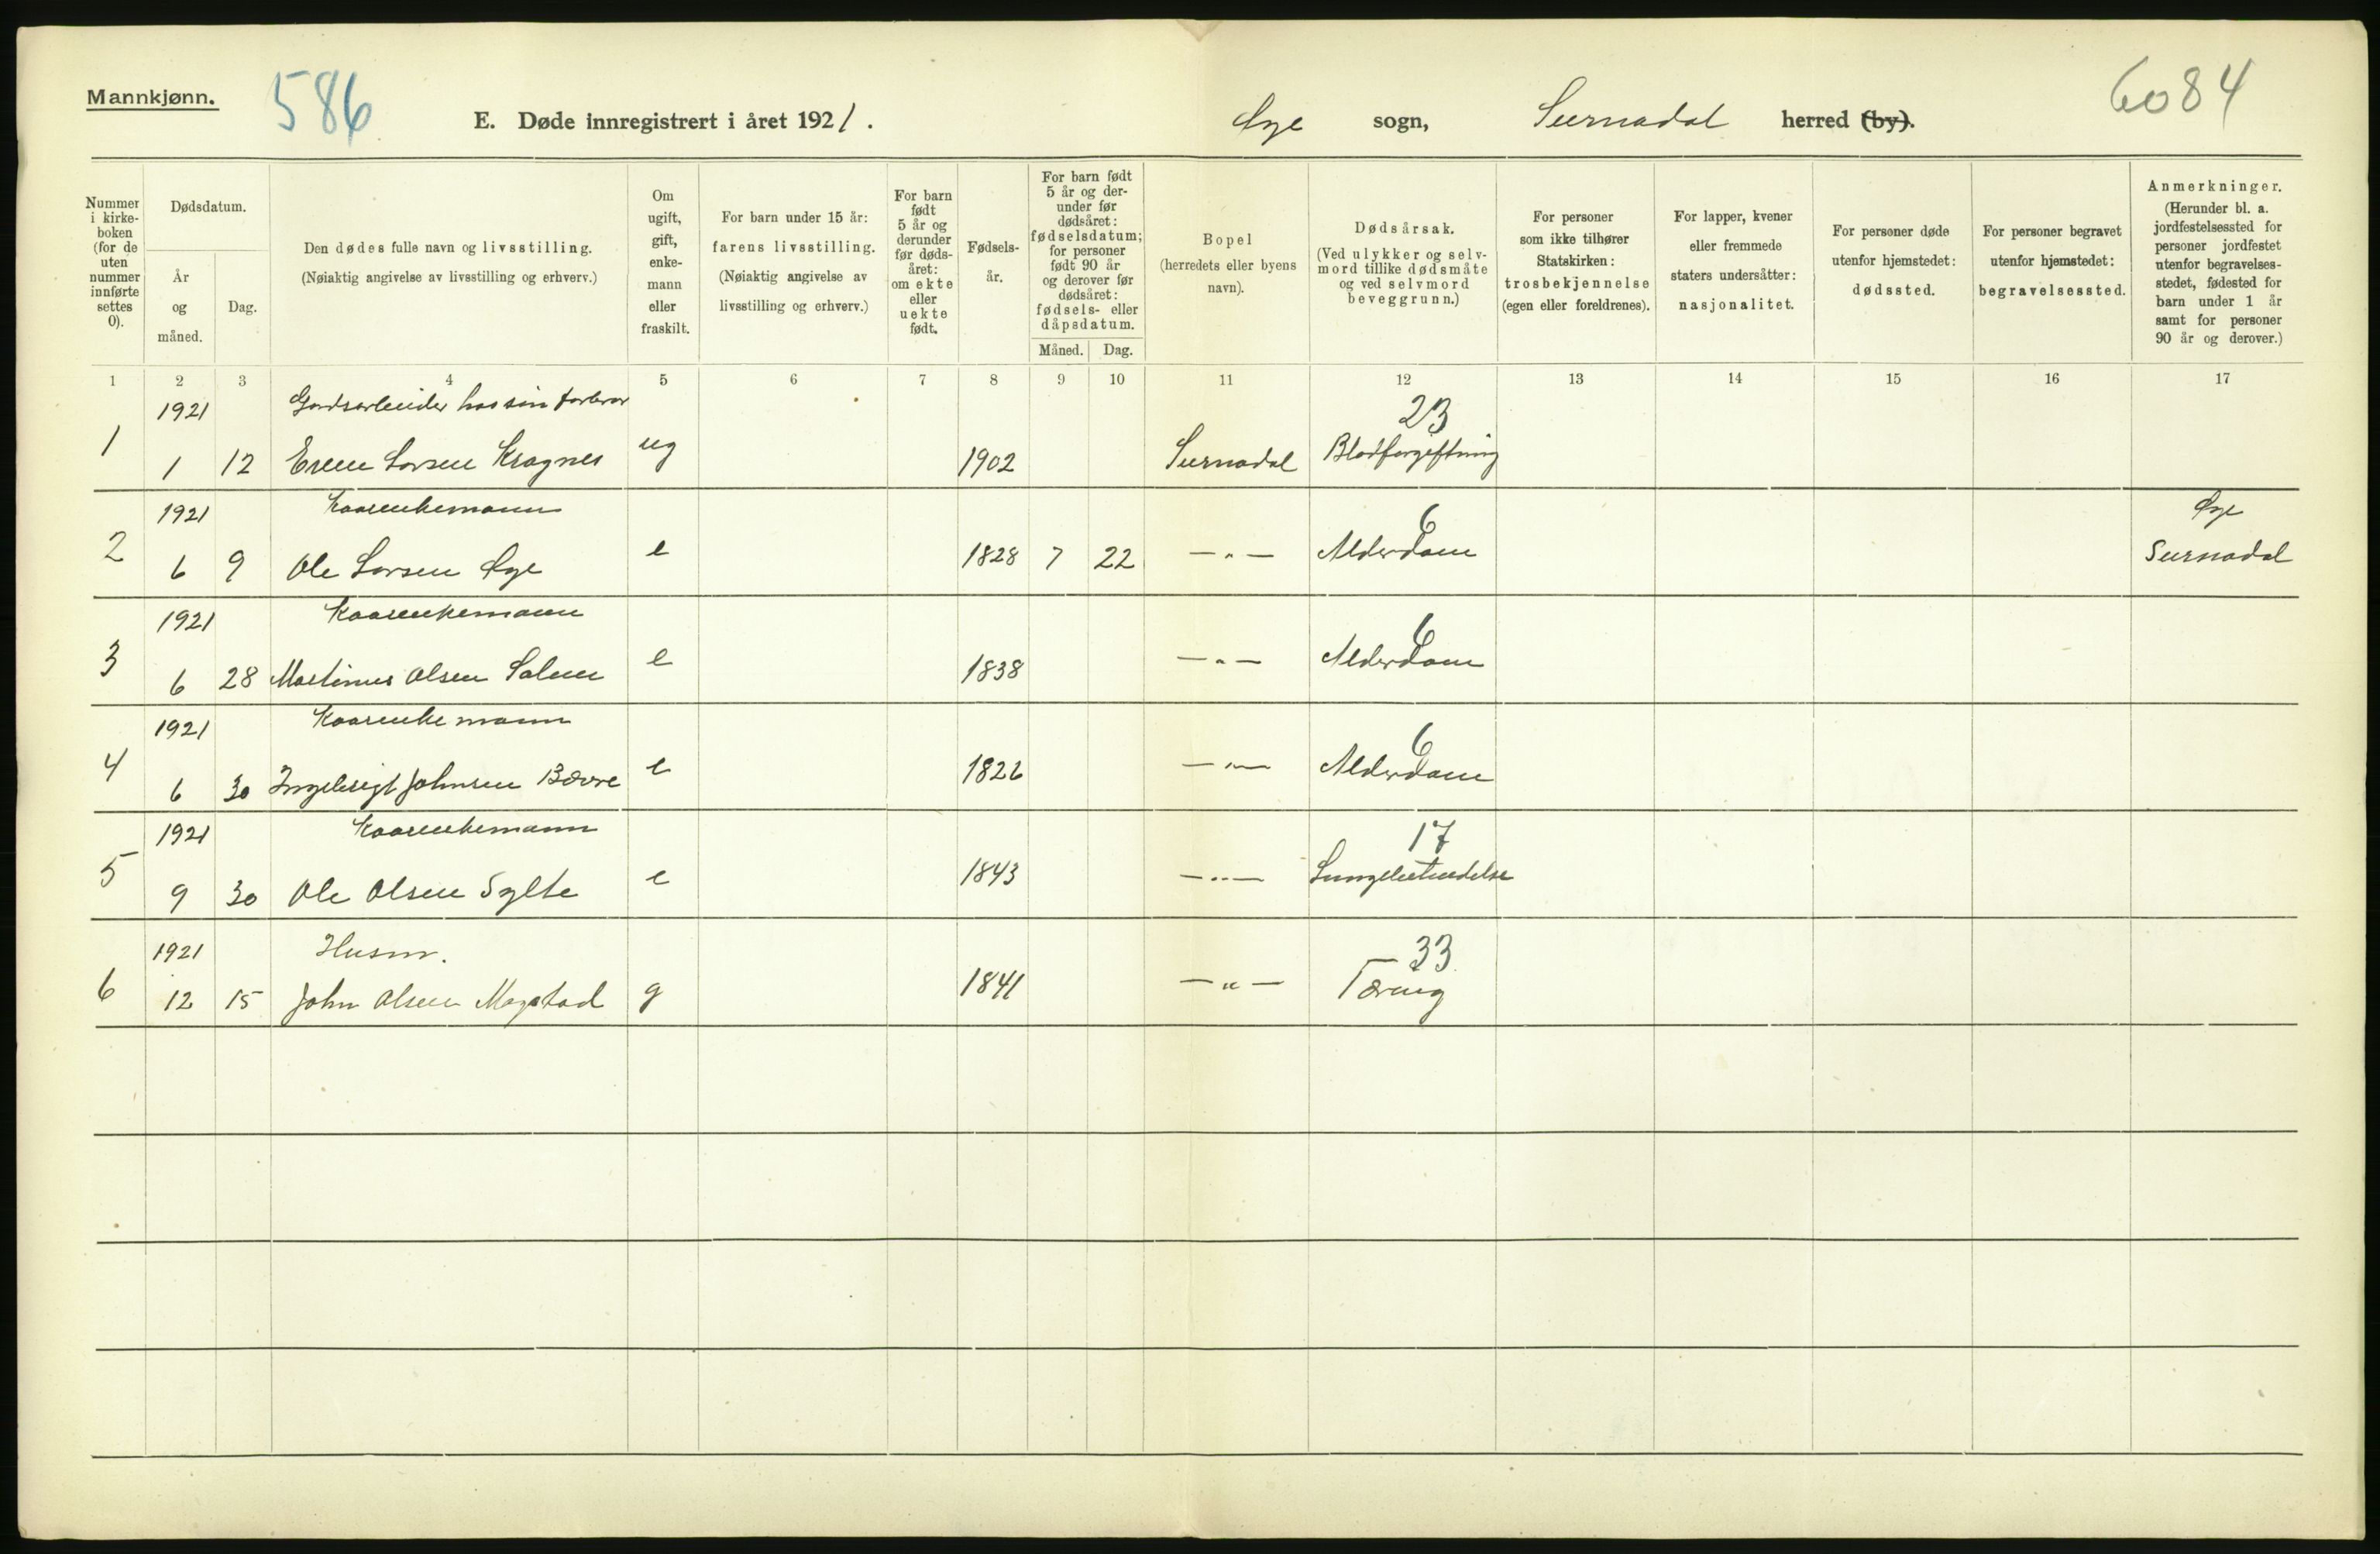 Mannkjønn. 586 E. Døde innregistrert i året 1921. Øye sogn, Surnadal herred (by). 6084
Nummer i kirkeboken (for de uten nummer innførte settes 0).
Dødsdatum.
År og måned.
Dag.
Den dødes fulle navn og livsstilling.
(Nøiaktig angivelse av livsstilling og erhverv.)
Om ugift, gift, enkemann eller fraskilt.
For barn under 15 år: farens livsstilling.
(Nøiaktig angivelse av livsstilling og erhverv.)
For barn født 5 år og derunder før dødsåret: om ekte eller uekte født.
Fødselsår.
For barn født 5 år og derunder før dødsåret: fødselsdatum; for personer født 90 år og derover før dødsåret: fødsels- eller dåpsdatum.
Måned. Dag.
Bopel (herredets eller byens navn).
Dødsårsak.
(Ved ulykker og selvmord tillike dødsmåte og ved selvmord beveggrunn.)
For personer som ikke tilhører Statskirken: trosbekjennelse (egen eller foreldrenes).
For lapper, kvener eller fremmede staters undersåtter: nasjonalitet.
For personer døde utenfor hjemstedet: dødssted.
For personer begravet utenfor hjemstedet: begravelsessted.
Anmerkninger.
(Herunder bl. a. jordfestelsessted for personer jordfestet utenfor begravelsesstedet, fødested for barn under 1 år samt for personer 90 år og derover.)
1 2 3 4 5 6 7 8 9 10 11 12 13 14 15 16 17
1921 Gardsarbeider hos sin farbror 23
1 1 12 Larsen ug 1902 Surnadal Blodforgiftning
1921 Kaarenkemann 6 Øye
2 6 9 Ole Larsen Øye e 1828 7 22 — " — Alderdom Surnadal
1921 Kaarenkemann 6
3 6 28 Martinus Olsen e 1838 — " — Alderdom
1921 Kaarenkemann 6
4 6 30 Johnsen Bævre e 1826 — " — Alderdom
1921 Kaarenkemann 17
5 9 30 Ole Olsen Sylte e 1843 — " — Lungebetendelse
1921 Husm. 33
6 12 15 John Olsen Mogstad g 1841 — " — Tæring